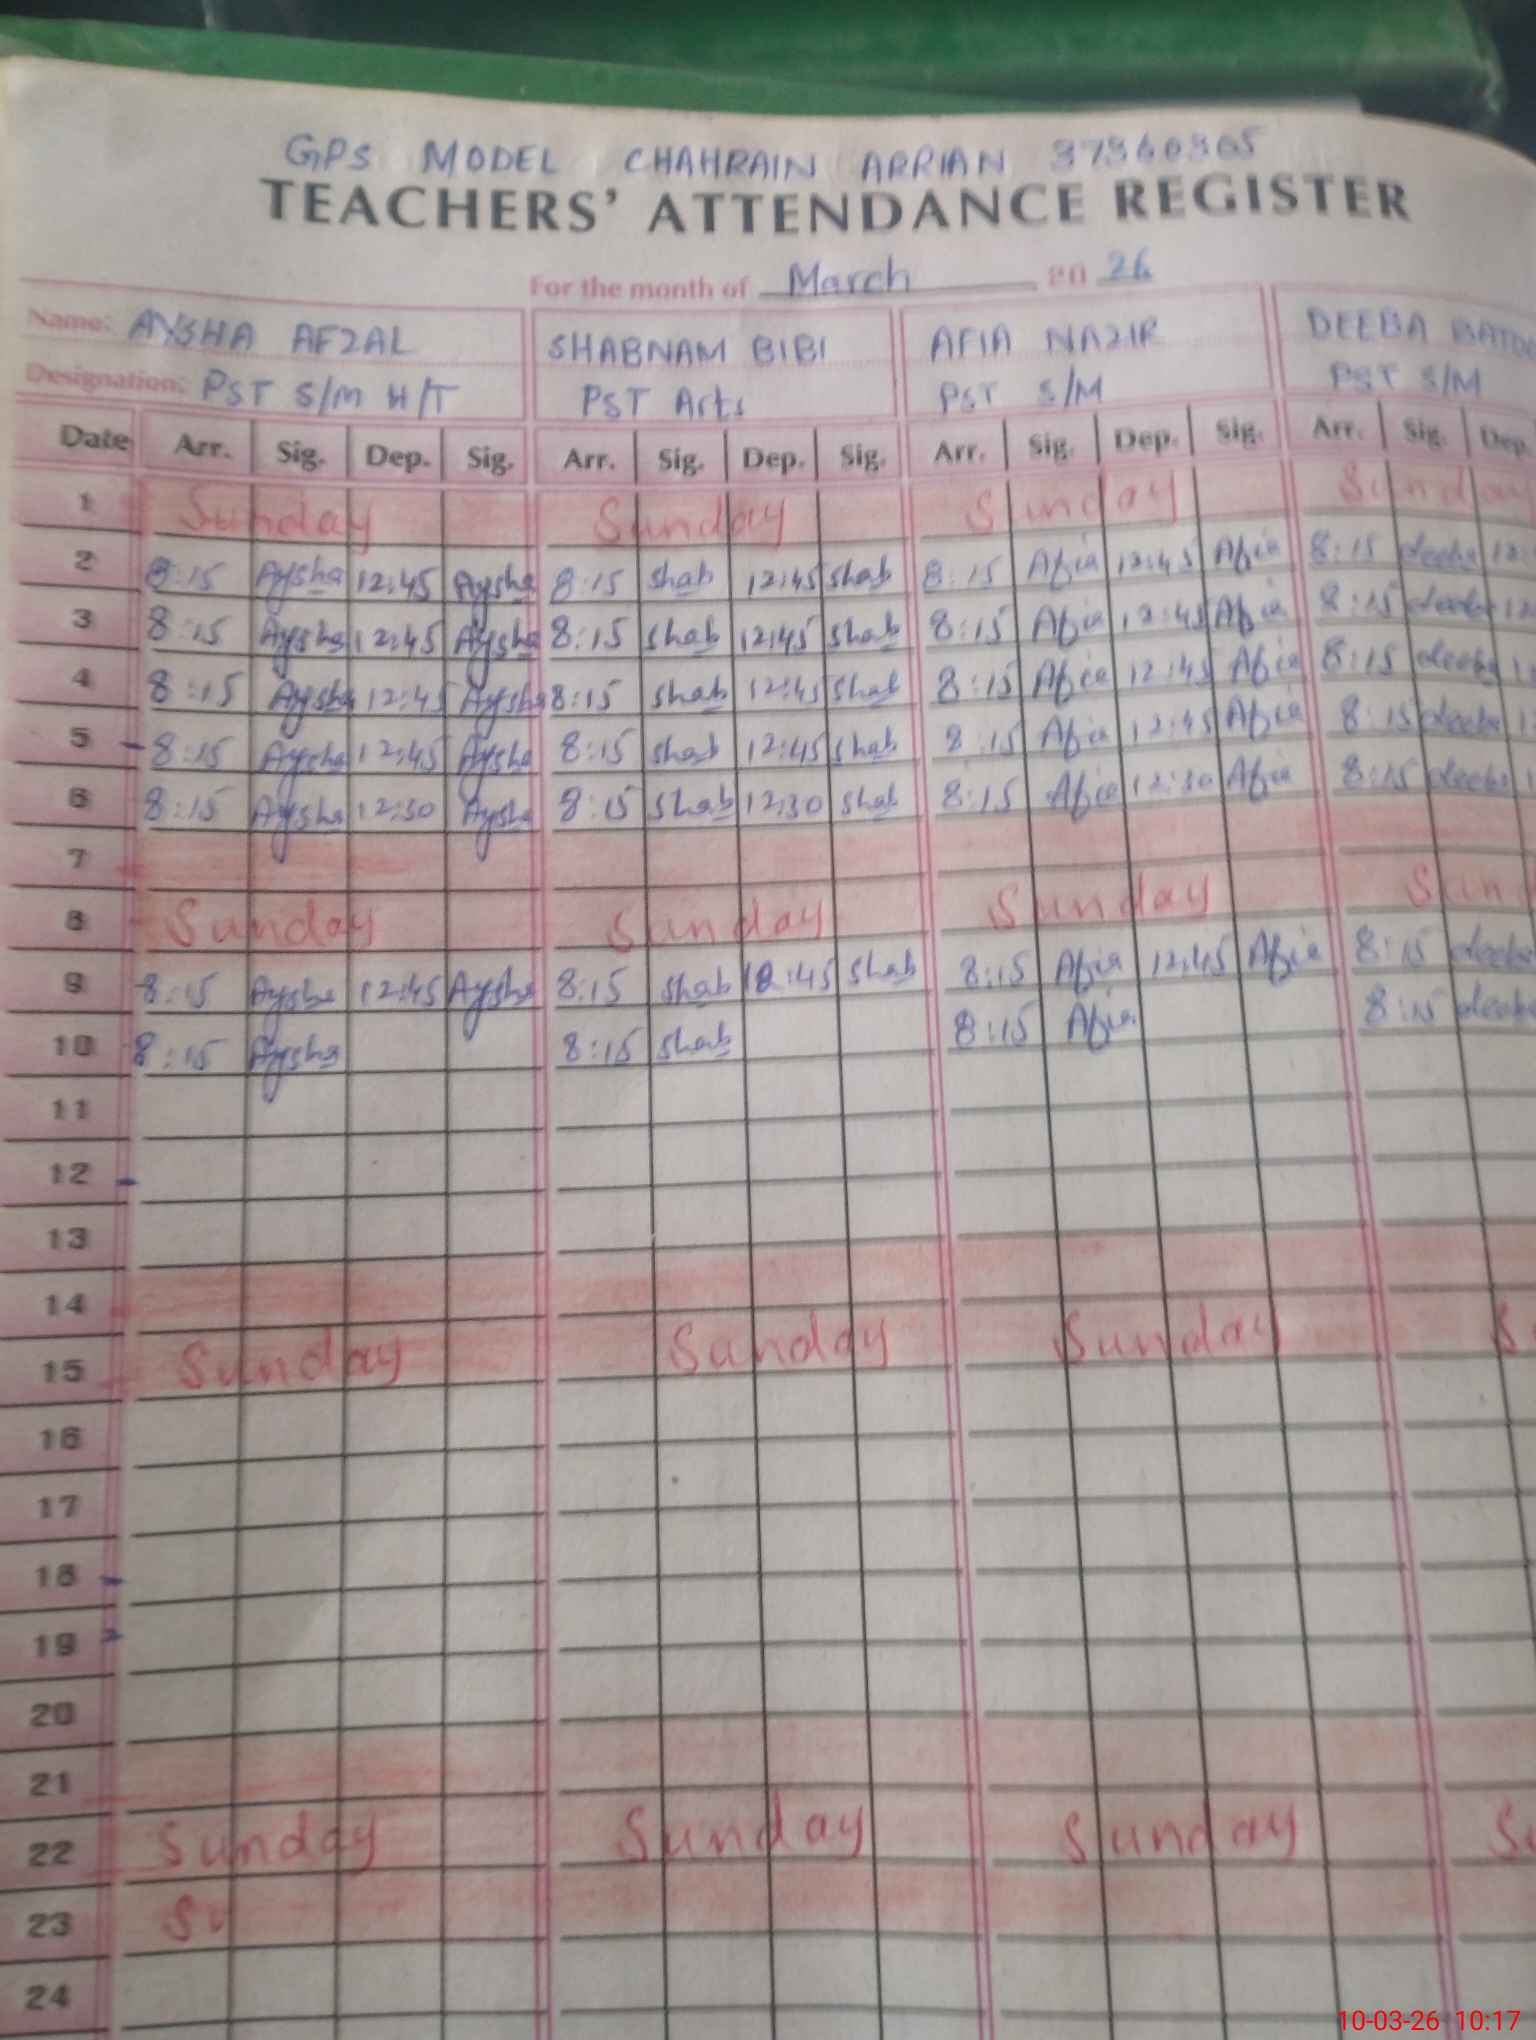 GPS MODEL CHAHRAIN ARRIAN 37360305
TEACHERS' ATTENDANCE REGISTER
For the month of March 20 26
Name: AYSHA AFZAL SHABNAM BIBI AFIA NAZIR DEEBA
Designation: PST S/M H/T PST Arts PST S/M PST S/M
Date Arr. Sig. Dep. Sig. Arr. Sig. Dep. Sig. Arr. Sig. Dep. Sig. Arr. Sig. Dep.
1 Sunday Sunday Sunday Sunday
2 8:15 Aysha 12:45 Aysha 8:15 Shab 12:45 Shab 8:15 Afia 12:45 Afia 8:15 deeba 12
3 8:15 Aysha 12:45 Aysha 8:15 Shab 12:45 Shab 8:15 Afia 12:45 Afia 8:15 deeba 12
4 8:15 Aysha 12:45 Aysha 8:15 Shab 12:45 Shab 8:15 Afia 12:45 Afia 8:15 deeba
5 8:15 Aysha 12:45 Aysha 8:15 Shab 12:45 Shab 8:15 Afia 12:45 Afia 8:15 deeba
6 8:15 Aysha 12:30 Aysha 8:15 Shab 12:30 Shab 8:15 Afia 12:30 Afia 8:15 deeba
7
8 Sunday Sunday Sunday Sun
9 8:15 Aysha 12:45 Aysha 8:15 Shab 12:45 Shab 8:15 Afia 12:45 Afia 8:15 deeba
10 8:15 Aysha 8:15 Shab 8:15 Afia 8:15 deeba
11
12
13
14
15 Sunday Sunday Sunday S
16
17
18
19
20
21
22 Sunday Sunday Sunday Su
23 Su
24
10-03-26 10:17